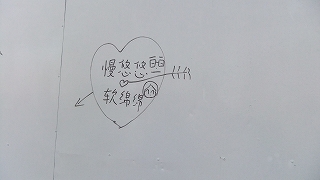 慢悠悠
软绵绵